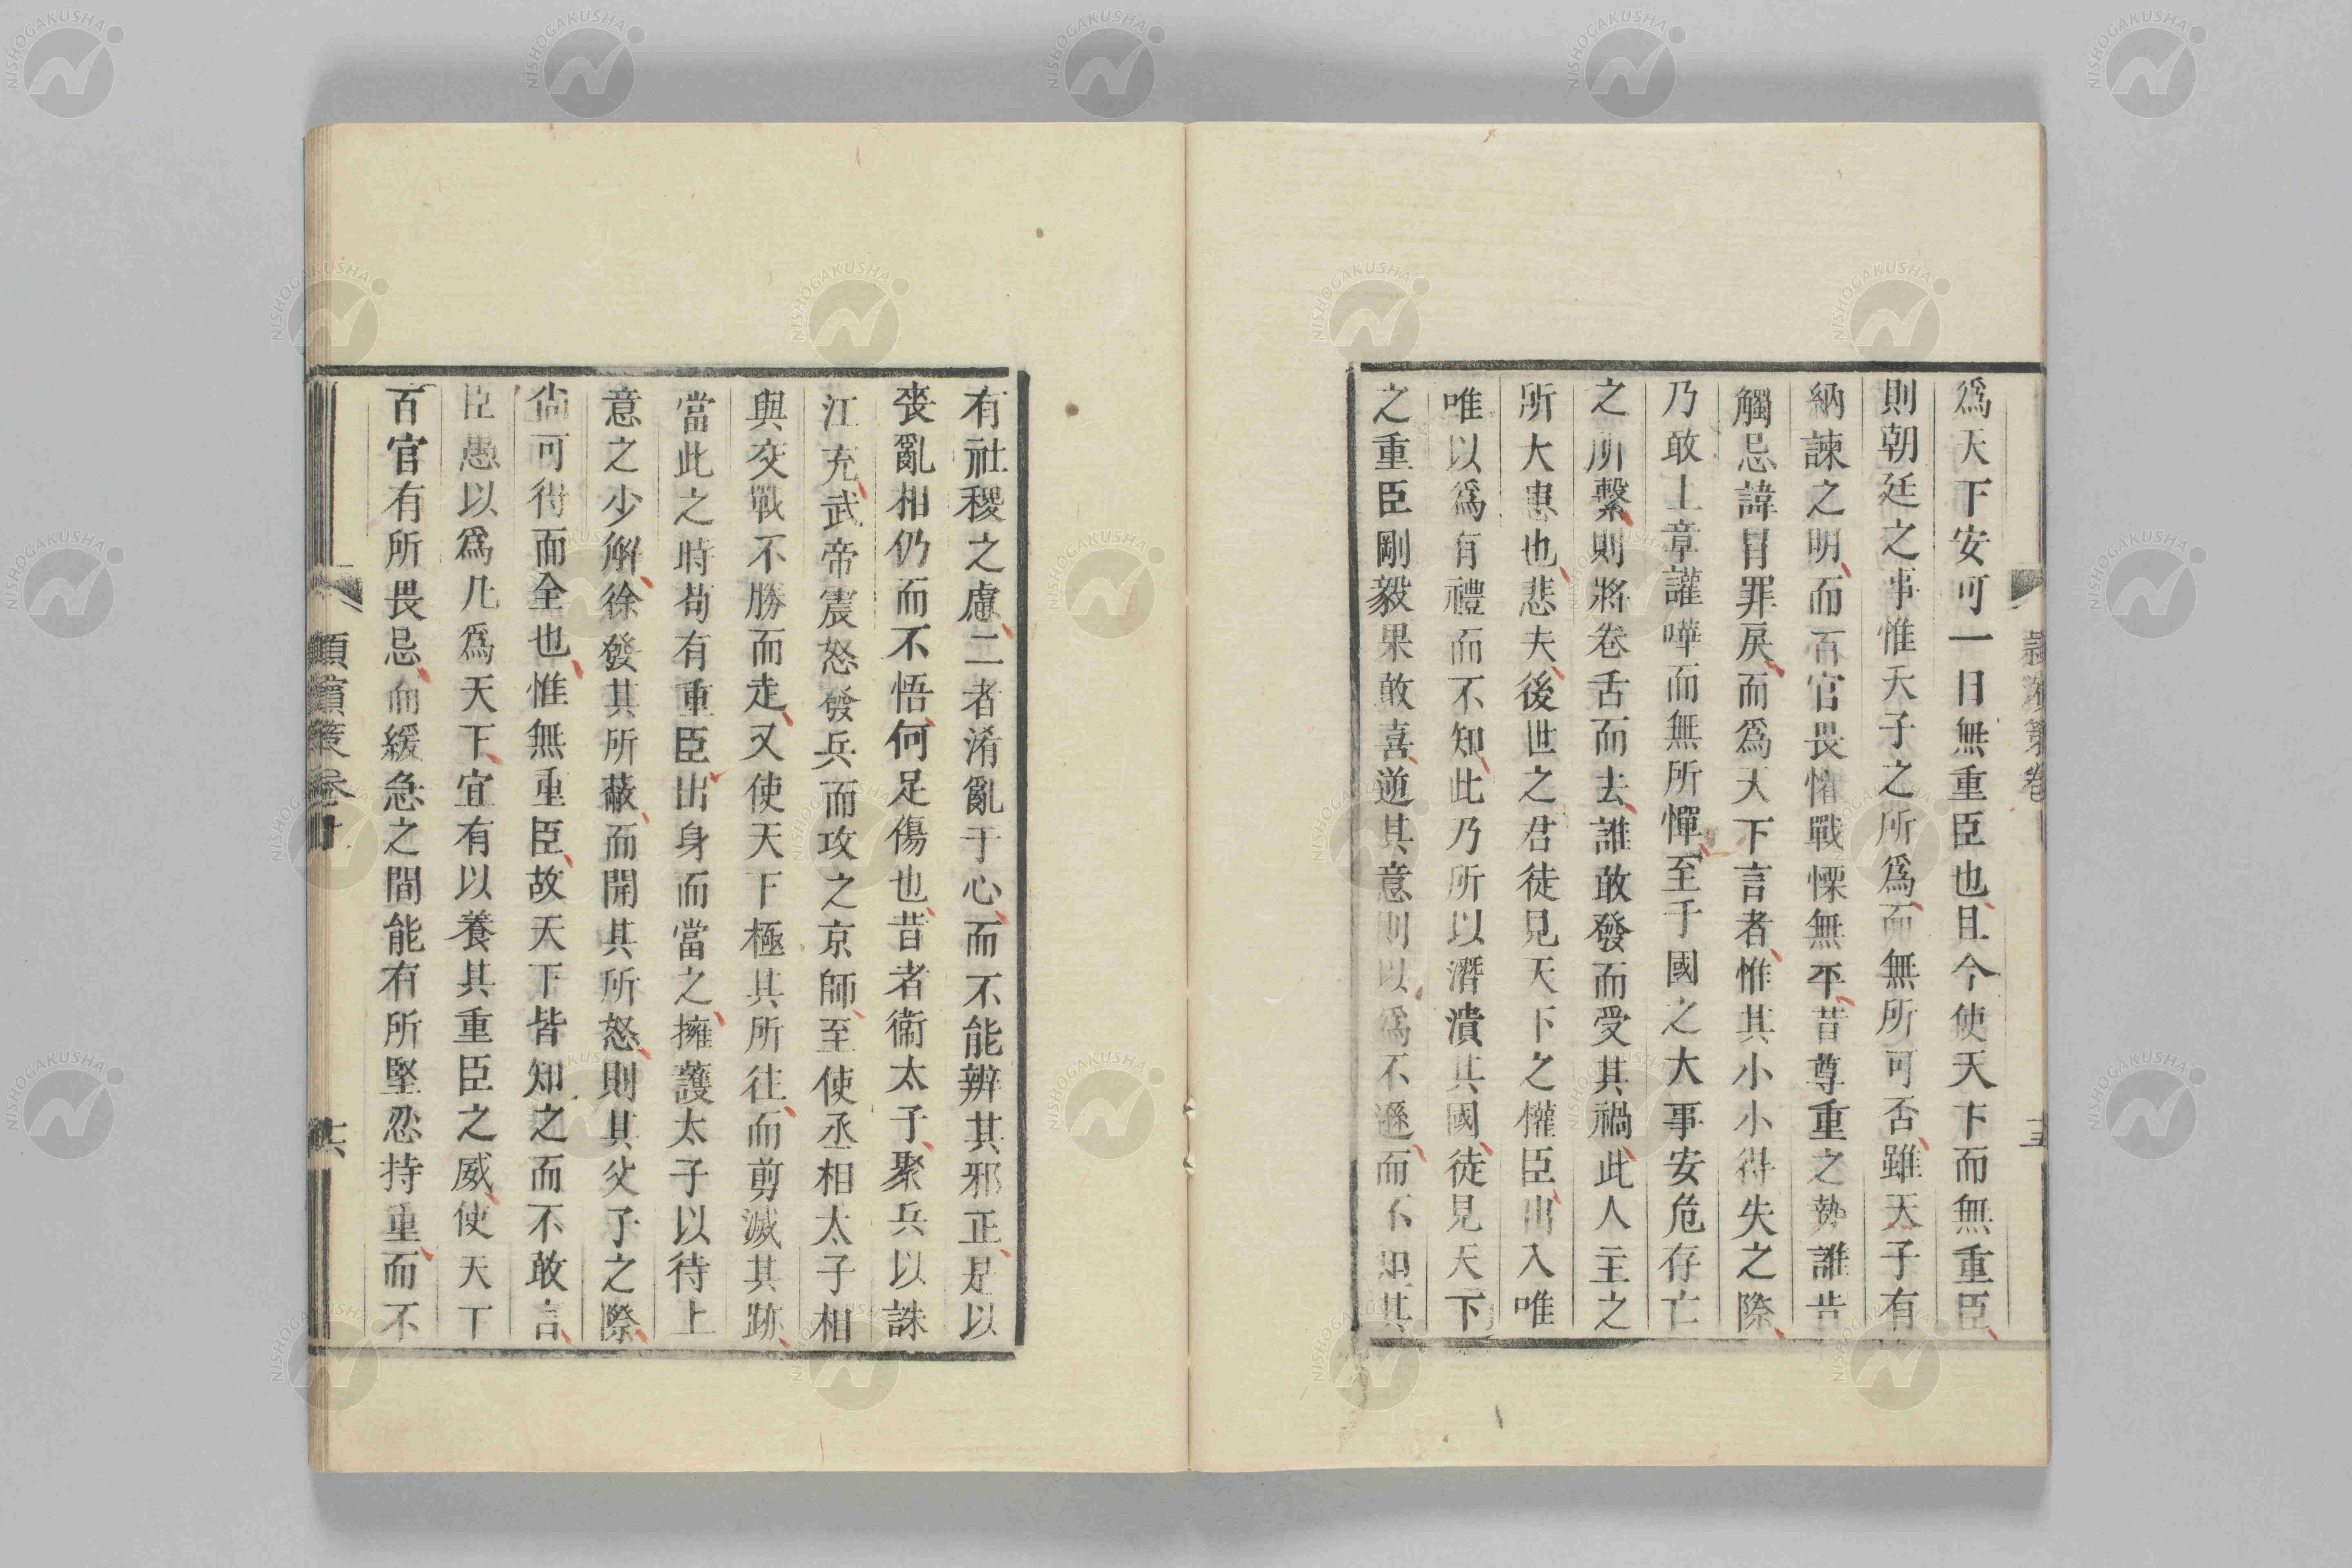 爲天下安可一日無重臣也且今使天下而無重臣
則朝廷之事惟天子之所爲而無所可否雖天子有
納諫之明而百官畏懼戰慄無平昔尊重之勢誰肯
觸忌諱冒罪戾而爲天下言者惟其小小得失之際
乃敢上章讙嘩而無所憚至于國之大事安危存亡
之所繫則將卷舌而去誰敢發而受其禍此人主之
所大患也悲夫後世之君徒見天下之權臣出入唯
唯以爲有禮而不知此乃所以潛潰其國徒見天下
之重臣剛毅果敢喜逆其意則以爲不遜而不知其
有社稷之慮二者淆亂于心而不能辨其邪正是以
喪亂相仍而不悟何足傷也昔者衛太子聚兵以誅
江充武帝震怒發兵而攻之京師至使丞相太子相
與交戰不勝而走又使天下極其所往而剪滅其跡
當此之時茍有重臣出身而當之擁護太子以待上
意之少解徐發其所蔽而開其所怒則其父子之際
尙可得而全也惟無重臣故天下皆知之而不敢言
臣愚以爲凡爲天下宜有以養其重臣之威使天下
百官有所畏忌而緩急之間能有所堅忍持重而不
潁濱策卷十